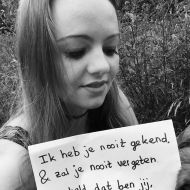 Ik heb je nooit gekend,
& zal je nooit vergeten
held dat ben jij,